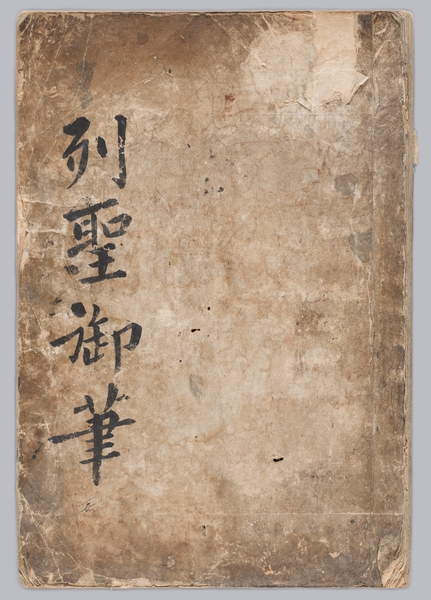 列聖御筆